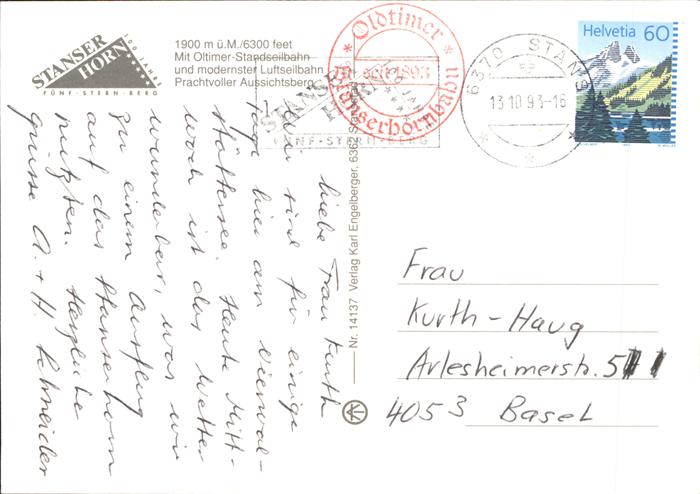 STANSER
HORN
100 JAHRE
FÜNF-STERN-BERG
1900 m ü.M./6300 feet
Mit Oltimer-Standseilbahn
und modernster Luftseilbahn
Prachtvoller Aussichtsberg
Oldtimer
seit 1893
Stanserhornbahn
STANSER
HORN
FÜNF-STERN-BERG
6370 STANS
13.10.93-16
Helvetia 60
Liebe Frau Kurth
Wir sind für einige
Tage hier am Vierwal-
stättersee. Heute Mitt-
woch ist das Wetter
wunderbar, was wir
zu einem Ausflug
auf das Stanserhorn
nutzten. Herzliche
grüsse A. + H. Schneider
Nr. 14137 Verlag Karl Engelberger, 6362 Stansstad
Frau
Kurth-Haug
Arlesheimerstr. 5
4053 Basel